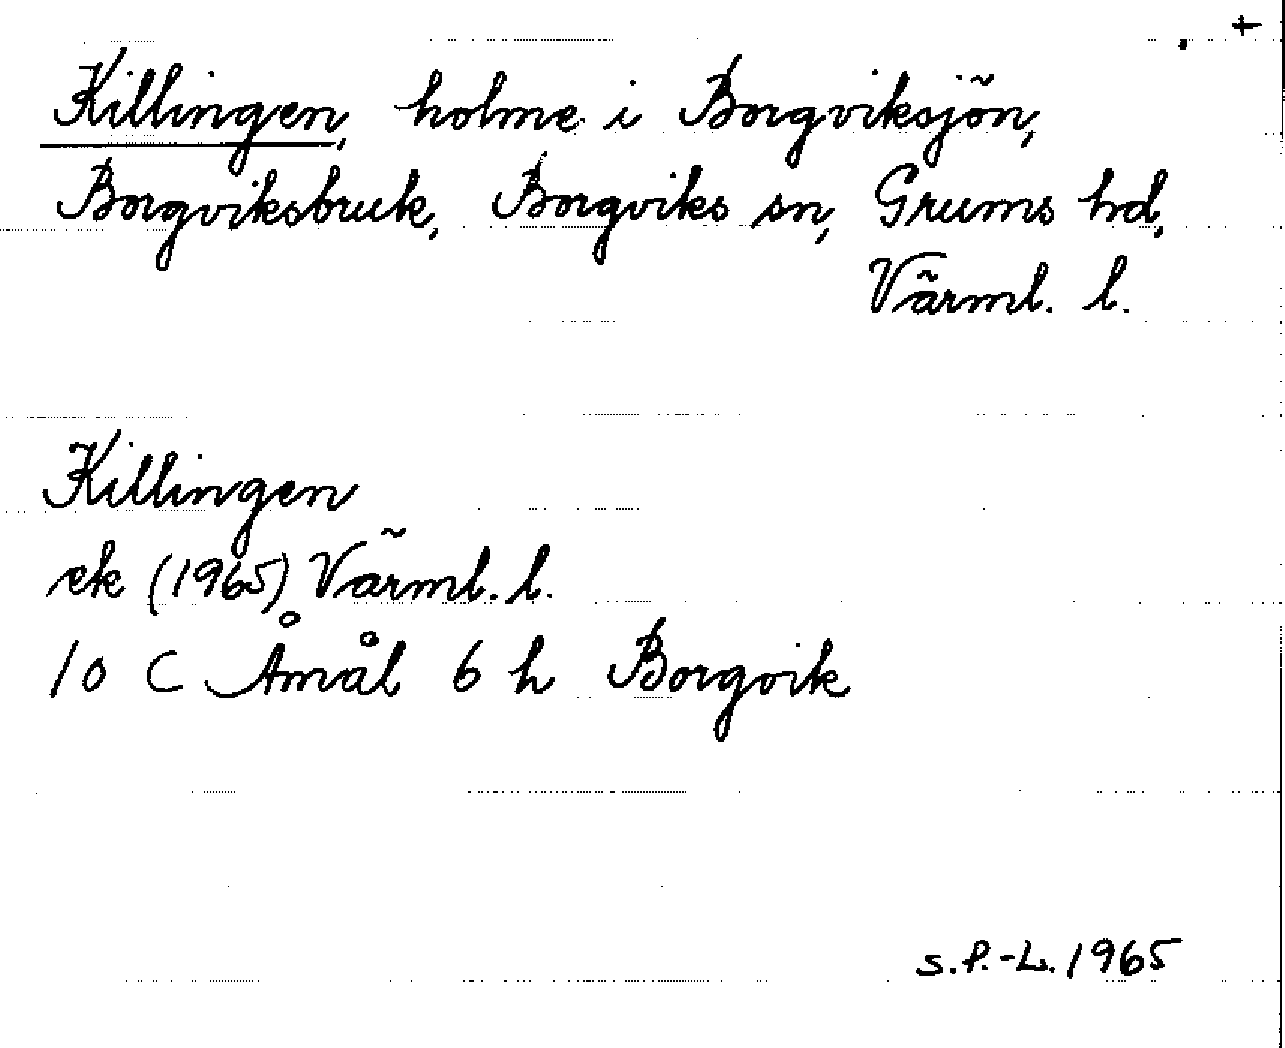 +
Killingen, holme i Borgviksjön,
Borgviksbruk, Borgviks sn, Grums hd,
Värml. l.
Killingen
ek (1965) Värml. l.
10 C Åmål 6 h Borgvik
S.P.-L. 1965